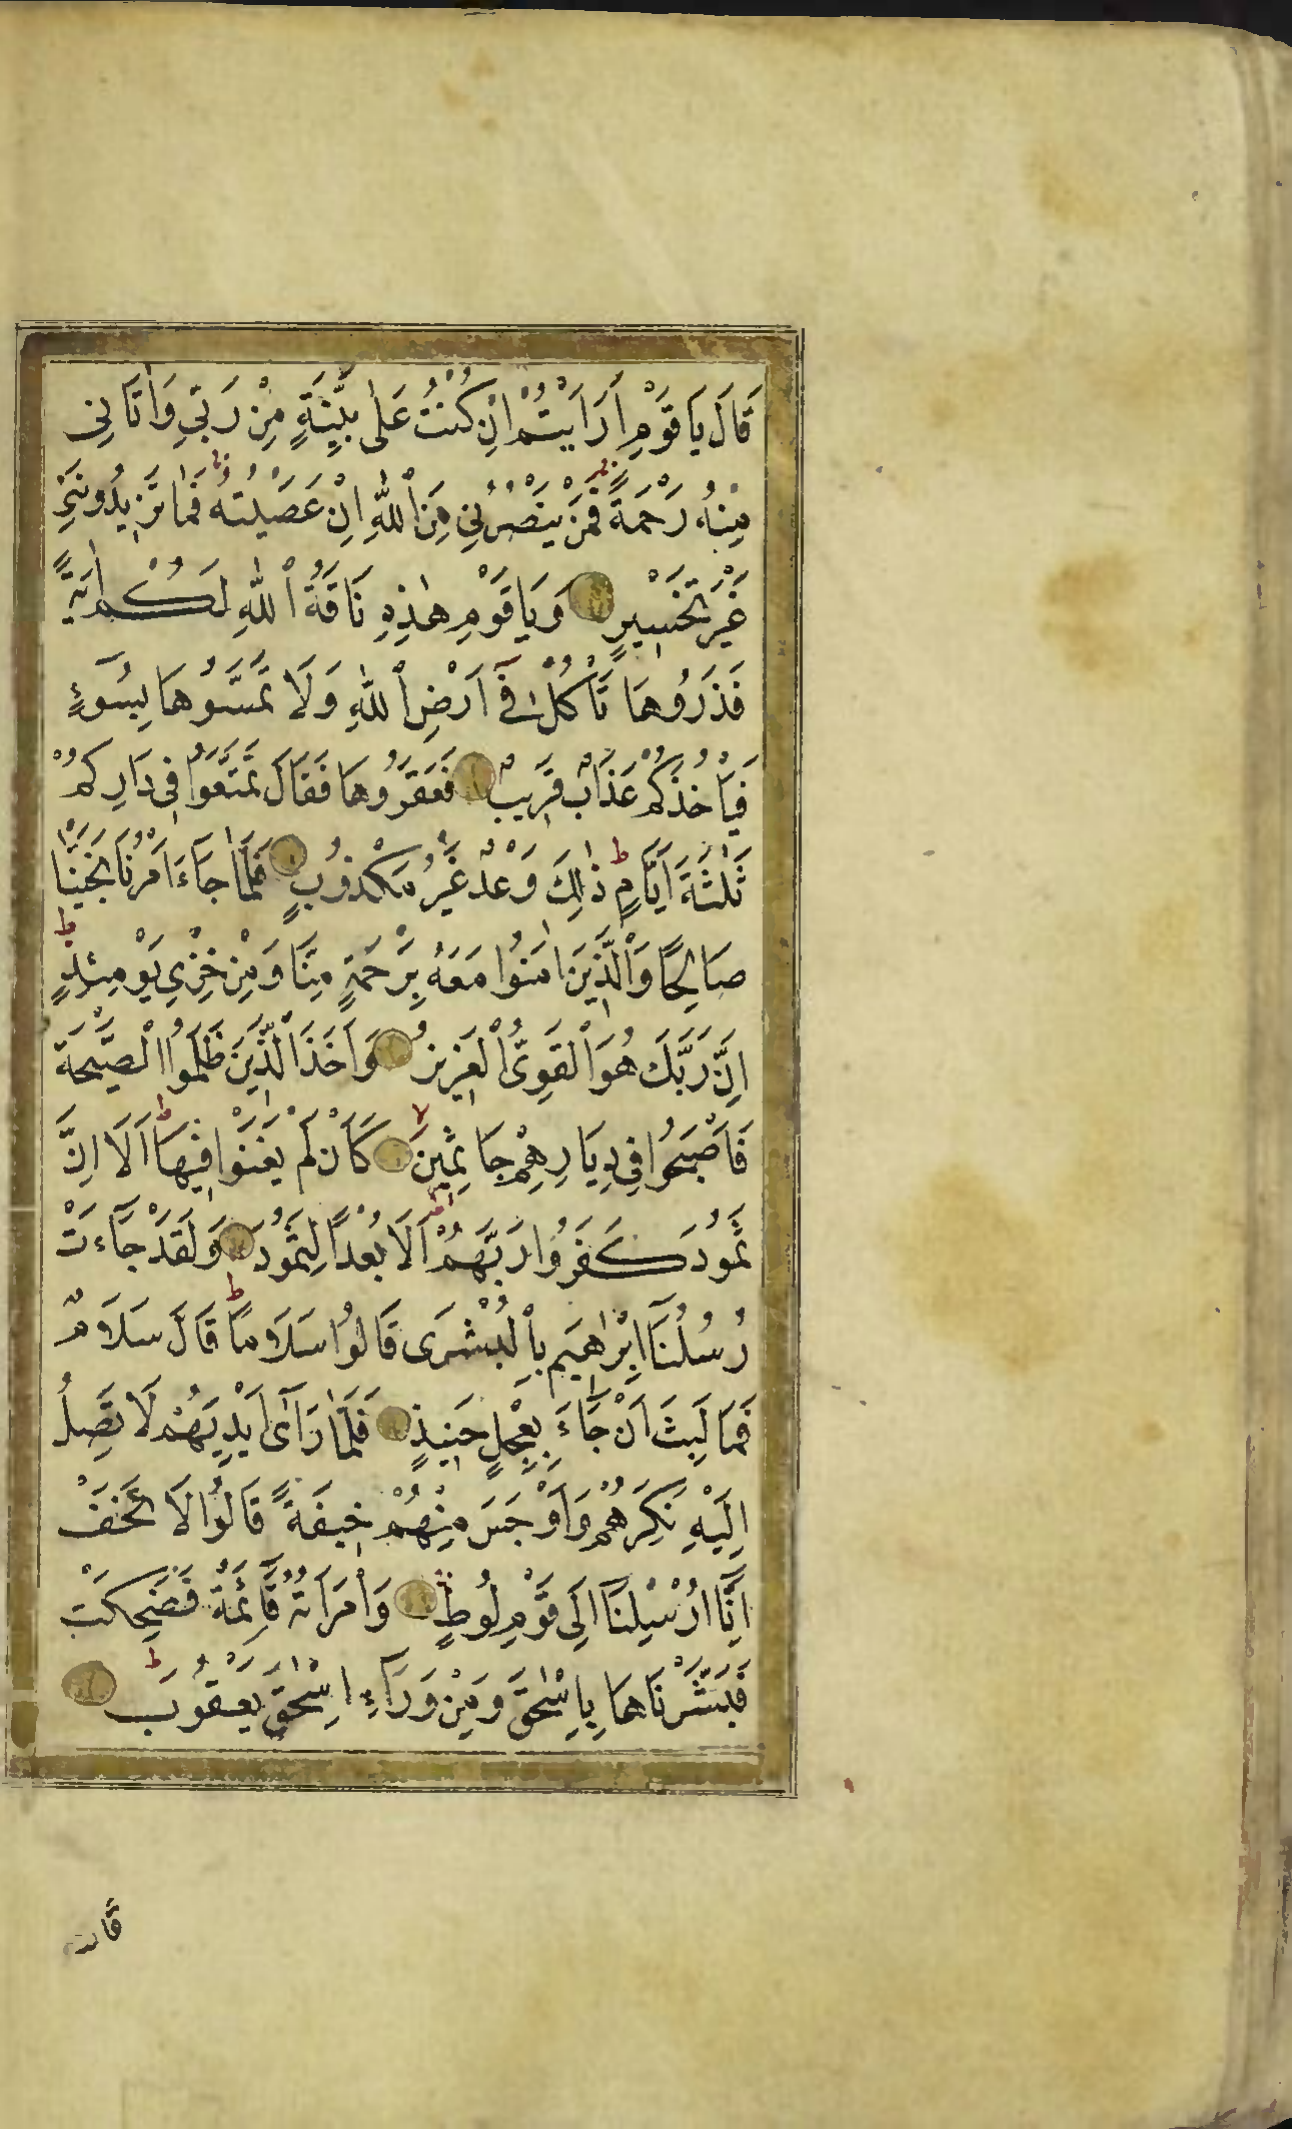 قَالَ يَا قَوْمِ اَرَاَيْتُمْ اِنْ كُنْتُ عَلٰى بَيِّنَةٍ مِنْ رَبّ۪ي وَاٰتَان۪ي
مِنْهُ رَحْمَةً فَمَنْ يَنْصُرُن۪ي مِنَ اللّٰهِ اِنْ عَصَيْتُهُ فَمَا تَز۪يدُونَن۪ي
غَيْرَ تَخْس۪يرٍ وَيَا قَوْمِ هٰذِهِ نَاقَةُ اللّٰهِ لَكُمْ اٰيَةً
فَذَرُوهَا تَأْكُلْ ف۪ٓي اَرْضِ اللّٰهِ وَلَا تَمَسُّوهَا بِسُٓوءٍ
فَيَأْخُذَكُمْ عَذَابٌ قَر۪يبٌ فَعَقَرُوهَا فَقَالَ تَمَتَّعُوا ف۪ي دَارِكُمْ
ثَلٰثَةَ اَيَّامٍ ط ذٰلِكَ وَعْدٌ غَيْرُ مَكْذُوبٍ فَلَمَّا جَاءَ اَمْرُنَا نَجَّيْنَا
صَالِحًا وَالَّذ۪ينَ اٰمَنُوا مَعَهُ بِرَحْمَةٍ مِنَّا وَمِنْ خِزْيِ يَوْمِئِذٍ ط
اِنَّ رَبَّكَ هُوَ الْقَوِيُّ الْعَز۪يزُ وَاَخَذَ الَّذ۪ينَ ظَلَمُوا الصَّيْحَةُ
فَاَصْبَحُوا ف۪ي دِيَارِهِمْ جَاثِم۪ينَ لا كَاَنْ لَمْ يَغْنَوْا ف۪يهَا ط اَلَا اِنَّ
ثَمُودَ كَفَرُوا رَبَّهُمْ اَلَا بُعْدًا لِثَمُودَ وَلَقَدْ جَاءَتْ
رُسُلُنَا اِبْرٰه۪يمَ بِالْبُشْرٰى قَالُوا سَلَامًا ط قَالَ سَلَامٌ
فَمَا لَبِثَ اَنْ جَاءَ بِعِجْلٍ حَن۪يذٍ فَلَمَّا رَآٰى اَيْدِيَهُمْ لَا تَصِلُ
اِلَيْهِ نَكِرَهُمْ وَاَوْجَسَ مِنْهُمْ خ۪يفَةً قَالُوا لَا تَخَفْ
اِنَّا اُرْسِلْنَا اِلٰى قَوْمِ لُوطٍ وَامْرَاَتُهُ قَائِمَةٌ فَضَحِكَتْ
فَبَشَّرْنَاهَا بِاِسْحٰقَ وَمِنْ وَرَاءِ اِسْحٰقَ يَعْقُوبَ ط
قالت